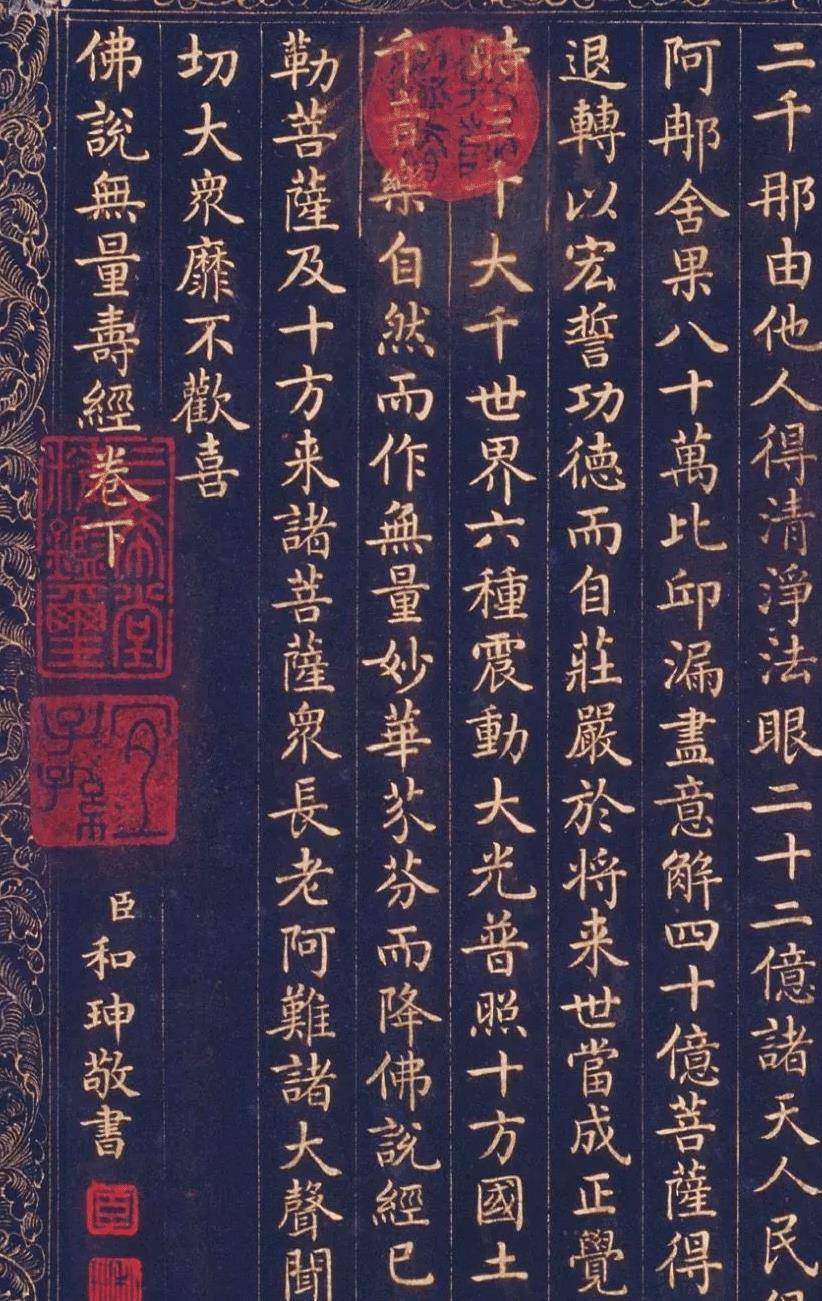 二千那由他人得清淨法眼二十二億諸天人民
阿那舍果八十萬比邱漏盡意解四十億菩薩得
退轉以宏誓功德而自莊嚴於将来世當成正覺
時三千大千世界六種震動大光普照十方國土
千音樂自然而作無量妙華芬芬而降佛說經已
勒菩薩及十方来諸菩薩衆長老阿難諸大聲聞
切大衆靡不歡喜
佛說無量壽經卷下
三希堂精鑑璽
宜子孫
臣和珅敬書
臣